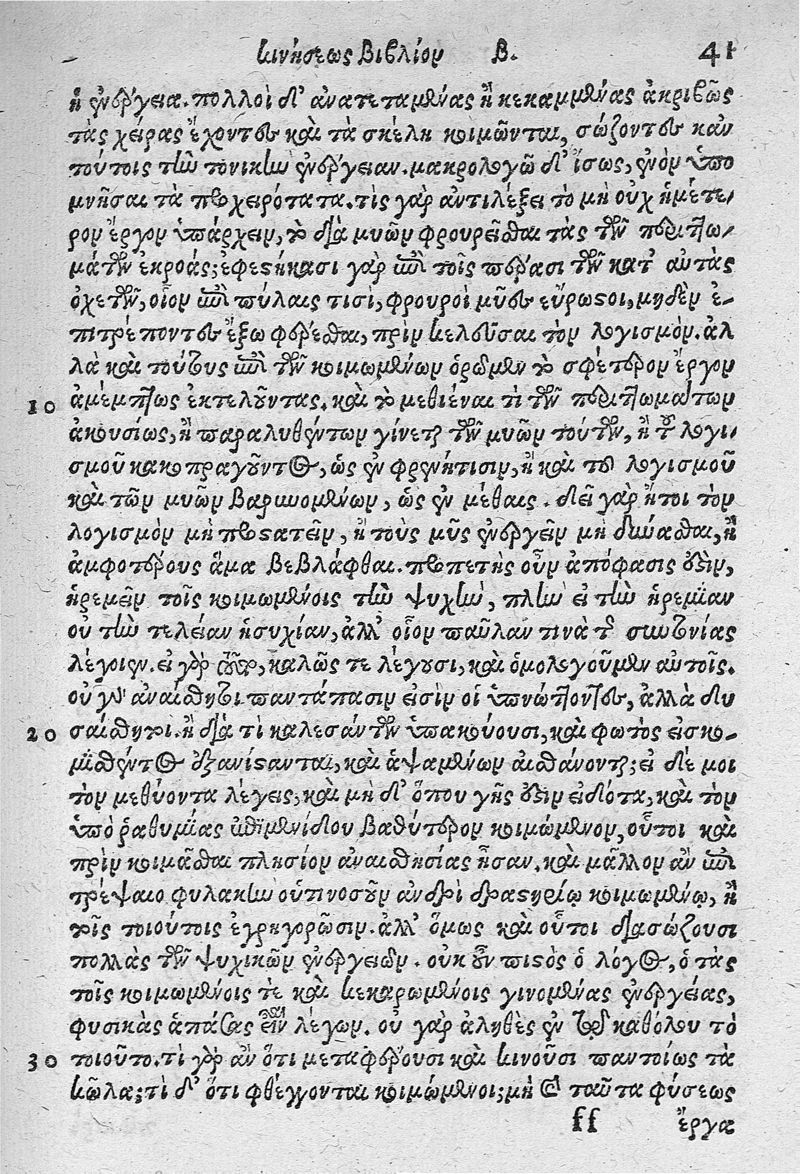 κινήσεως Βιβλίον Β. 41
ἢ ἐνέργεια. πολλοὶ δ' ἀνατεταμένας ἢ κεκαμμένας ἀκριβῶς
τὰς χεῖρας ἔχοντες καὶ τὰ σκέλη κοιμῶνται, σώζοντες κἀν
τούτοις τὴν τονικὴν ἐνέργειαν. μακρολογῶ δ' ἴσως, ἐνὸν ὑπο
μνῆσαι τὰ προχειρότατα. τίς γὰρ ἀντιλέξει τὸ μὴ οὐχ ἡμέτε-
ρον ἔργον ὑπάρχειν, τὸ διὰ μυῶν φρουρεῖσθαι τὰς τῶν περιττω-
μάτων ἐκροάς; ἐφεστήκασι γὰρ ἐπὶ τοῖς πέρασι τῶν κατ' αὐτὰς
ὀχετῶν, οἷον ἐπὶ πύλαις τισι, φρουροὶ μῦες εὔρωστοι, μηδὲν ἐ-
πιτρέποντες ἔξω φέρεσθαι, πρὶν κελεῦσαι τὸν λογισμόν. ἀλ
λὰ καὶ τούτους ἐπὶ τῶν κοιμωμένων ὁρῶμεν τὸ σφέτερον ἔργον
10 ἀμέμπτως ἐκτελοῦντας. καὶ τὸ μεθιέναι τὶ τῶν περιττωμάτων
ἀκουσίως, ἢ παραλυθέντων γίνεται τῶν μυῶν τούτων, ἢ τοῦ λογι-
σμοῦ κακοπραγοῦντος, ὡς ἐν φρενήτισιν, ἢ καὶ τοῦ λογισμοῦ
καὶ τῶν μυῶν βαρυνομένων, ὡς ἐν μέθαις. δεῖ γὰρ ἤτοι τὸν
λογισμὸν μὴ προστατεῖν, ἢ τοὺς μῦς ἐνεργεῖν μὴ δύνασθαι, ἢ
ἀμφοτέρους ἅμα βεβλάφθαι. προπετὴς οὖν ἀπόφασις οὐδὲν,
ἠρεμεῖν τοῖς κοιμωμένοις τὴν ψυχὴν, πλὴν εἰ τὴν ἠρεμίαν
οὐ τὴν τελείαν ἡσυχίαν, ἀλλ' οἷον παῦλαν τινὰ τῆς συντονίας
λέγοιεν. εἰ γὰρ οὕτω, καλῶς τε λέγουσι, καὶ ὁμολογοῦμεν αὐτοῖς.
οὐ γὰρ ἀναίσθητοι παντάπασιν εἰσὶν οἱ ὑπνώττοντες, ἀλλὰ δυ
20 σαίσθητοι. ἢ διὰ τί καλεσάντων ὑπακούουσι, καὶ φωτὸς εἰσκο-
μισθέντος ἐξανίστανται, καὶ ἁψαμένων αἰσθάνονται; εἰ δέ μοι
τὸν μεθύοντα λέγεις, καὶ μὴ δ' ὅπου γῆς ἐστιν εἰδότα, καὶ τὸν
ὑπὸ ῥαθυμίας ἐπιμενίδου βαθύτερον κοιμώμενον, οὗτοι καὶ
πρὶν κοιμᾶσθαι πλησίον ἀναισθησίας ἦσαν. καὶ μᾶλλον ἂν ἐπι
τρέψαιο φυλακὴν οὑτινοσοῦν ἀνδρὶ δραστηρίῳ κοιμωμένῳ, ἢ
τοῖς τοιούτοις ἐγρηγορῶσιν. ἀλλ' ὅμως καὶ οὗτοι διασώζουσι
πολλὰς τῶν ψυχικῶν ἐνεργειῶν. οὐκ οὖν πιστὸς ὁ λόγος, ὁ τὰς
τοῖς κοιμωμένοις τὲ καὶ κεκαρωμένοις γινομένας ἐνεργείας,
φυσικὰς ἁπάσας εἶναι λέγων. οὐ γὰρ ἀληθὲς ἐν τῷ καθόλου τὸ
30 τοιοῦτο. τί γὰρ ἂν ὅτι μεταφέρουσι καὶ κινοῦσι παντοίως τὰ
κῶλα; τί δ' ὅτι φθέγγονται κοιμώμενοι; μὴ καὶ ταῦτα φύσεως
ff ἔργα